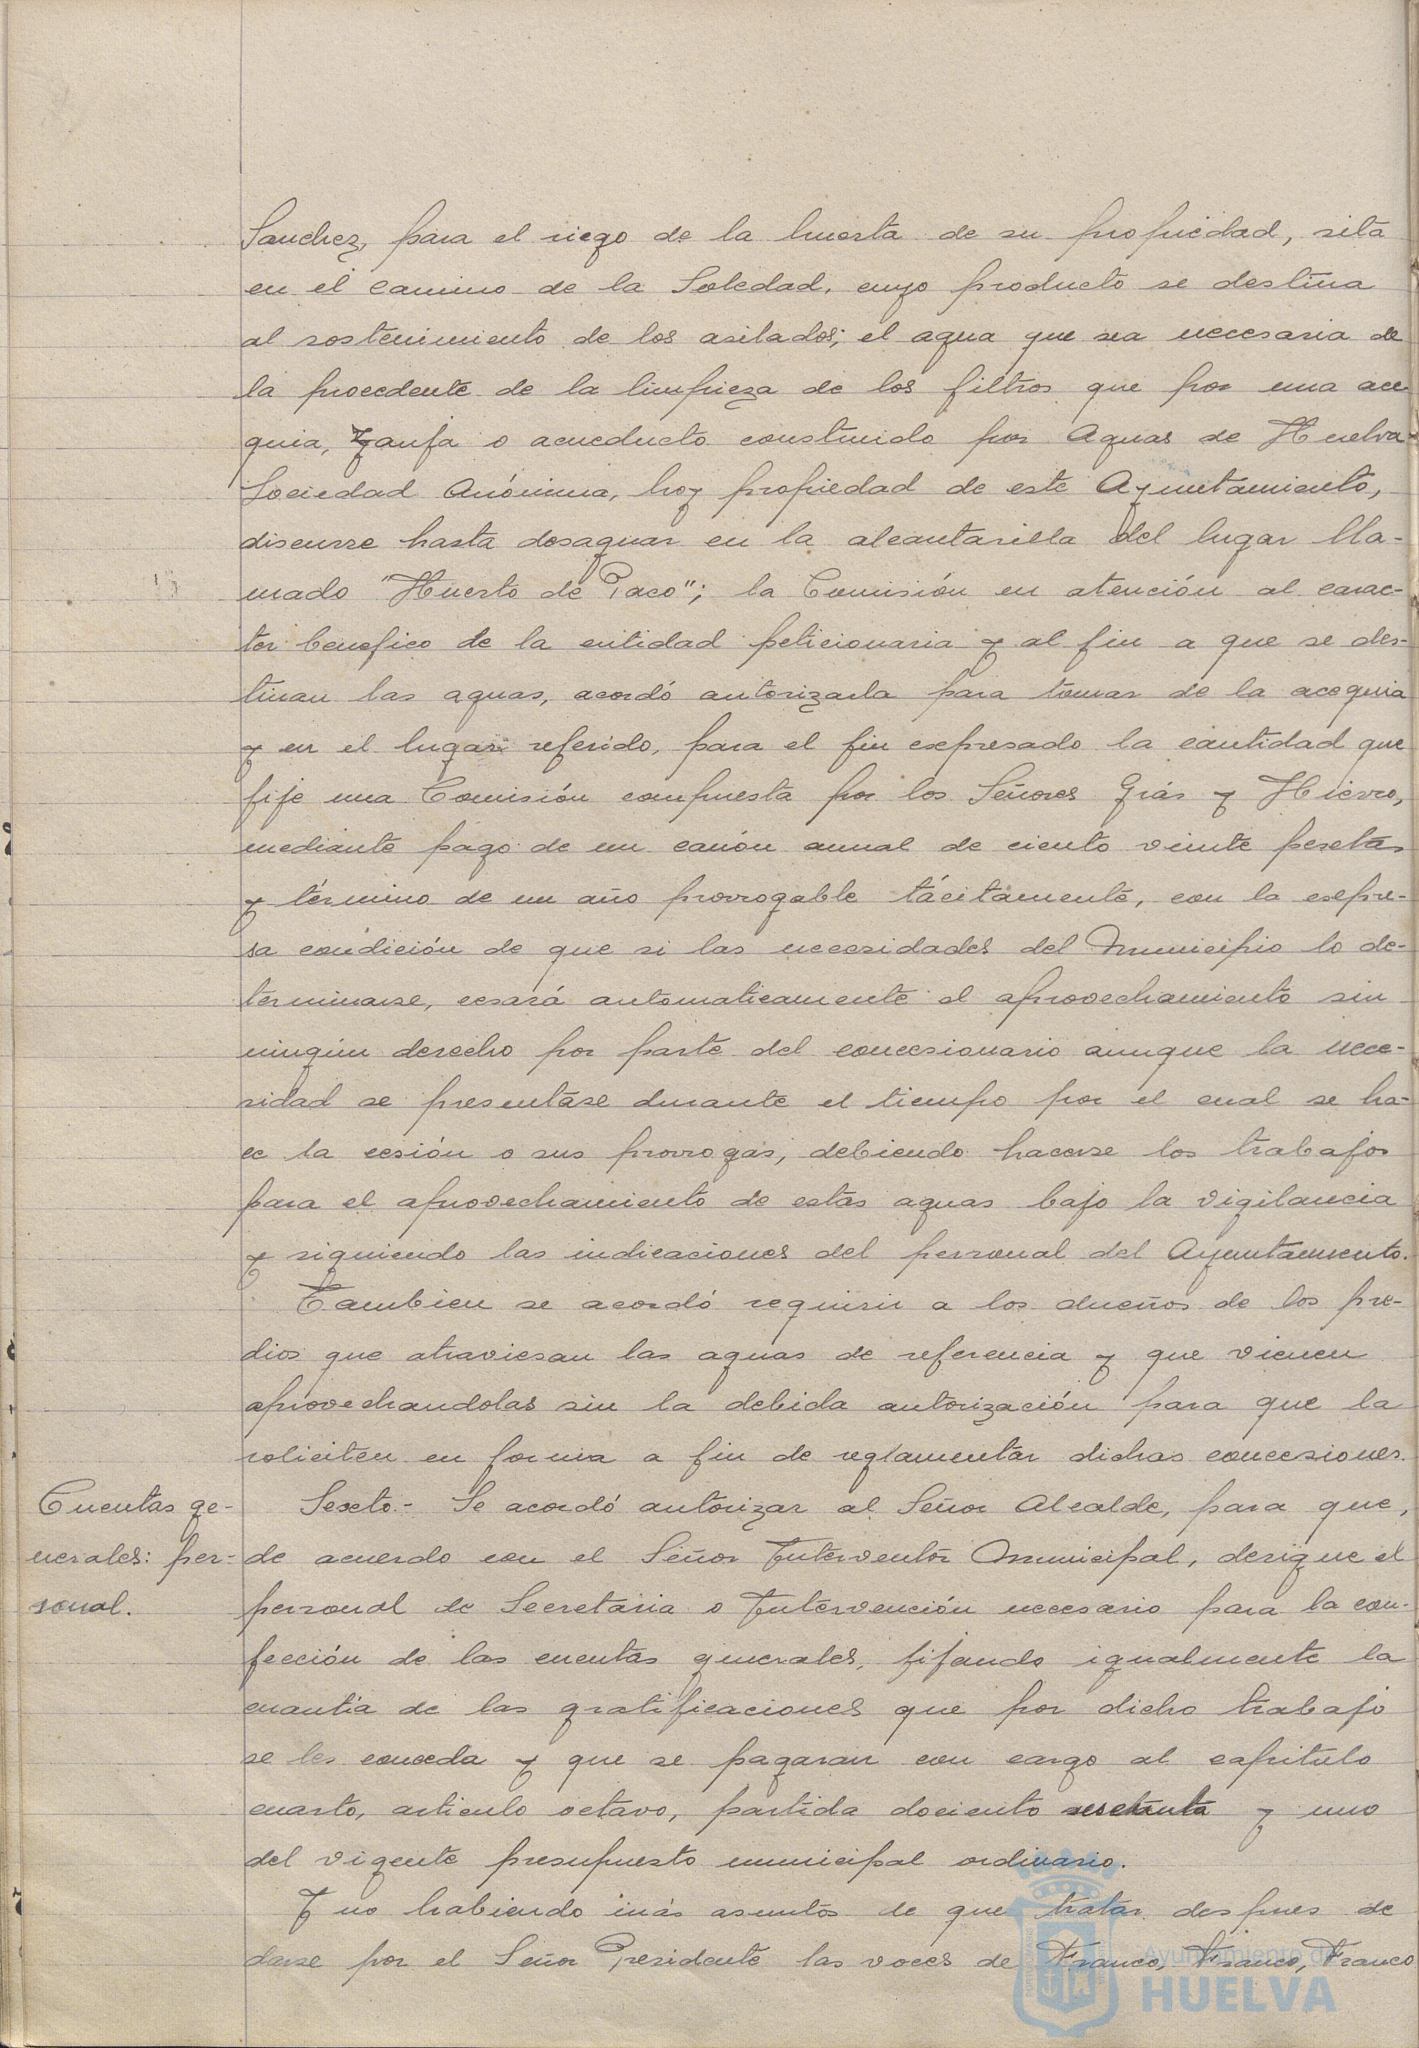 Sanchez, para el riego de la huerta de su propiedad, sita
en el camino de la Soledad, cuyo producto se destina
al sostenimiento de los asilados; el agua que sea necesaria de
la procedente de la limpieza de los filtros que por una ace
quia, zanja o acueducto construido por Aguas de Huelva
Sociedad Anónima, hoy propiedad de este Ayuntamiento,
discurre hasta desaguar en la alcantarilla del lugar lla-
mado "Huerto de Paco"; la Comisión en atención al carac-
ter benefico de la entidad peticionaria y al fin a que se des-
tinan las aguas, acordó autorizarla para tomar de la acequia
y en el lugar referido, para el fin expresado la cantidad que
fije una Comisión compuesta por los Señores Grás y Hierro,
mediante pago de un canón anual de ciento veinte pesetas
y término de un año prorrogable tácitamente, con la expre-
sa condición de que si las necesidades del Municipio lo de-
terminarse, cesará automaticamente el aprovechamiento sin
ningún derecho por parte del concesionario aunque la nece-
sidad se presentase durante el tiempo por el cual se ha-
ce la cesión o sus prorrogas, debiendo hacerse los trabajos
para el aprovechamiento de estas aguas bajo la vigilancia
y siguiendo las indicaciones del personal del Ayuntamiento.
Tambien se acordó requirir a los dueños de los pre-
dios que atraviesan las aguas de referencia y que vienen
aprovechandolas sin la debida autorización para que la
soliciten en forma a fin de reglamentar dichas concesiones.
Cuentas ge-
nerales: per-
sonal.
Sexto.- Se acordó autorizar al Señor Alcalde, para que,
de acuerdo con el Señor Interventor Municipal, designe el
personal de Secretaria o Intervención necesario para la con-
fección de las cuentas generales, fijando igualmente la
cuantia de las gratificaciones que por dicho trabajo
se les conceda y que se pagaran con cargo al capitulo
cuarto, articulo octavo, partida dociento sesetenta y uno
del vigente presupuesto municipal ordinario.
Y no habiendo más asuntos de que tratar despues de
darse por el Señor Presidente las voces de Franco, Franco, Franco
Ayuntamiento de
HUELVA